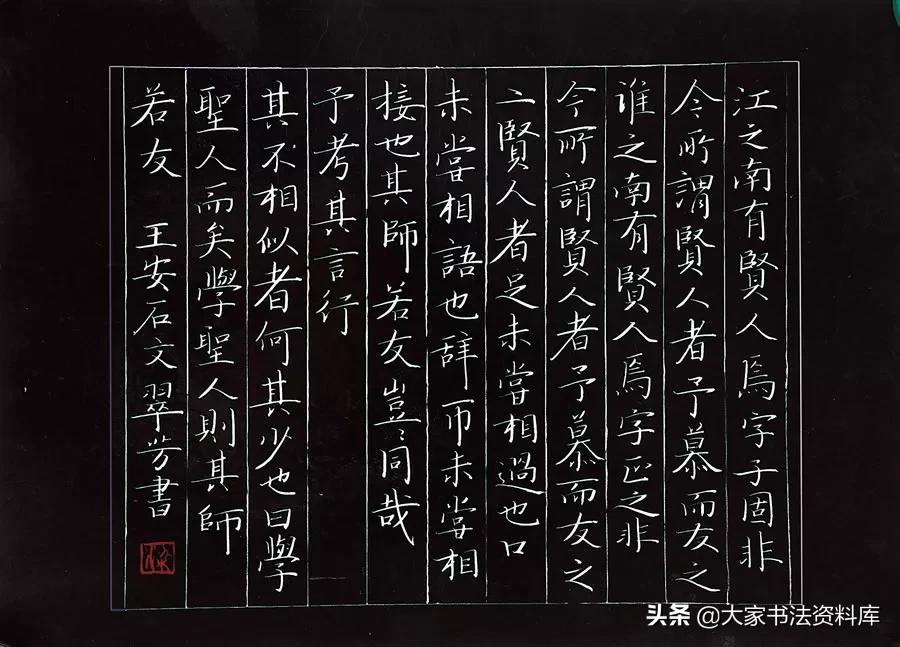 江之南有賢人焉字子固非
今所謂賢人者予慕而友之
淮之南有賢人焉字正之非
今所謂賢人者予慕而友之
二賢人者足未嘗相過也口
未嘗相語也辞币未嘗相
接也其師若友豈〻同哉
予考其言行
其不相似者何其少也曰學
聖人而矣學聖人則其師
若友 王安石文翠芳書
头条 @大家书法资料库